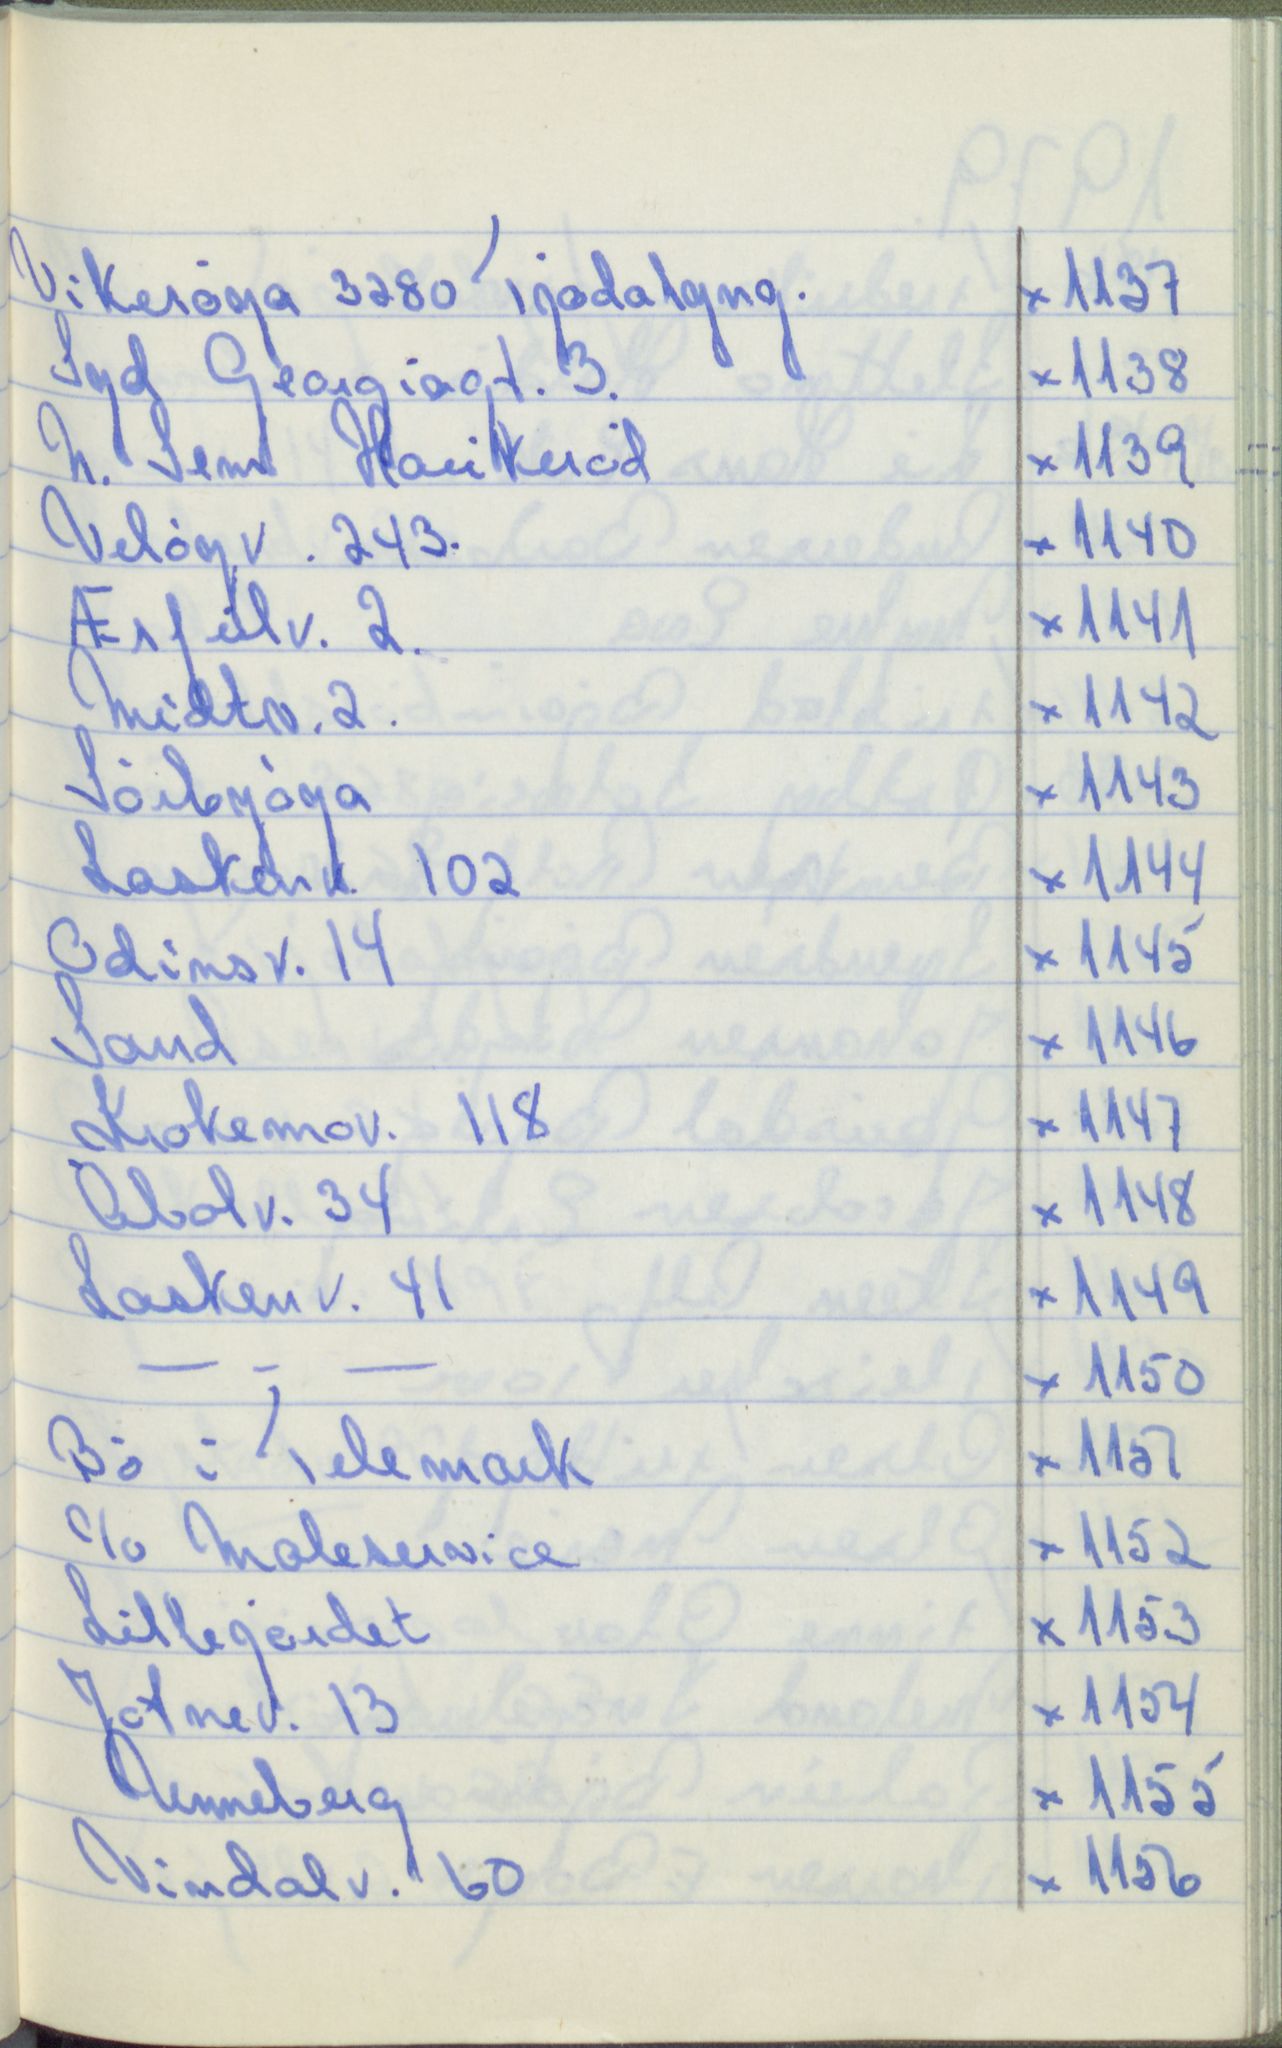 Vikeröya 3280 Tjodalyng. x 1137
Syd Georgiagt. 3. x 1138
N. Sem Haukeröd x 1139
Velöyv. 243. x 1140
Æsfúlv. 2. x 1141
Midtv. 2. x 1142
Sörbyöya x 1143
Laskenv. 102 x 1144
Odinsv. 14 x 1145
Sand x 1146
Krokemov. 118 x 1147
Abolv. 34 x 1148
Laskenv. 41 x 1149
— - — x 1150
Bö i Telemark x 1151
c/o Maleservice x 1152
Lillegärdet x 1153
Jotnev. 13 x 1154
Unneberg x 1155
Vindalv. 60 x 1156